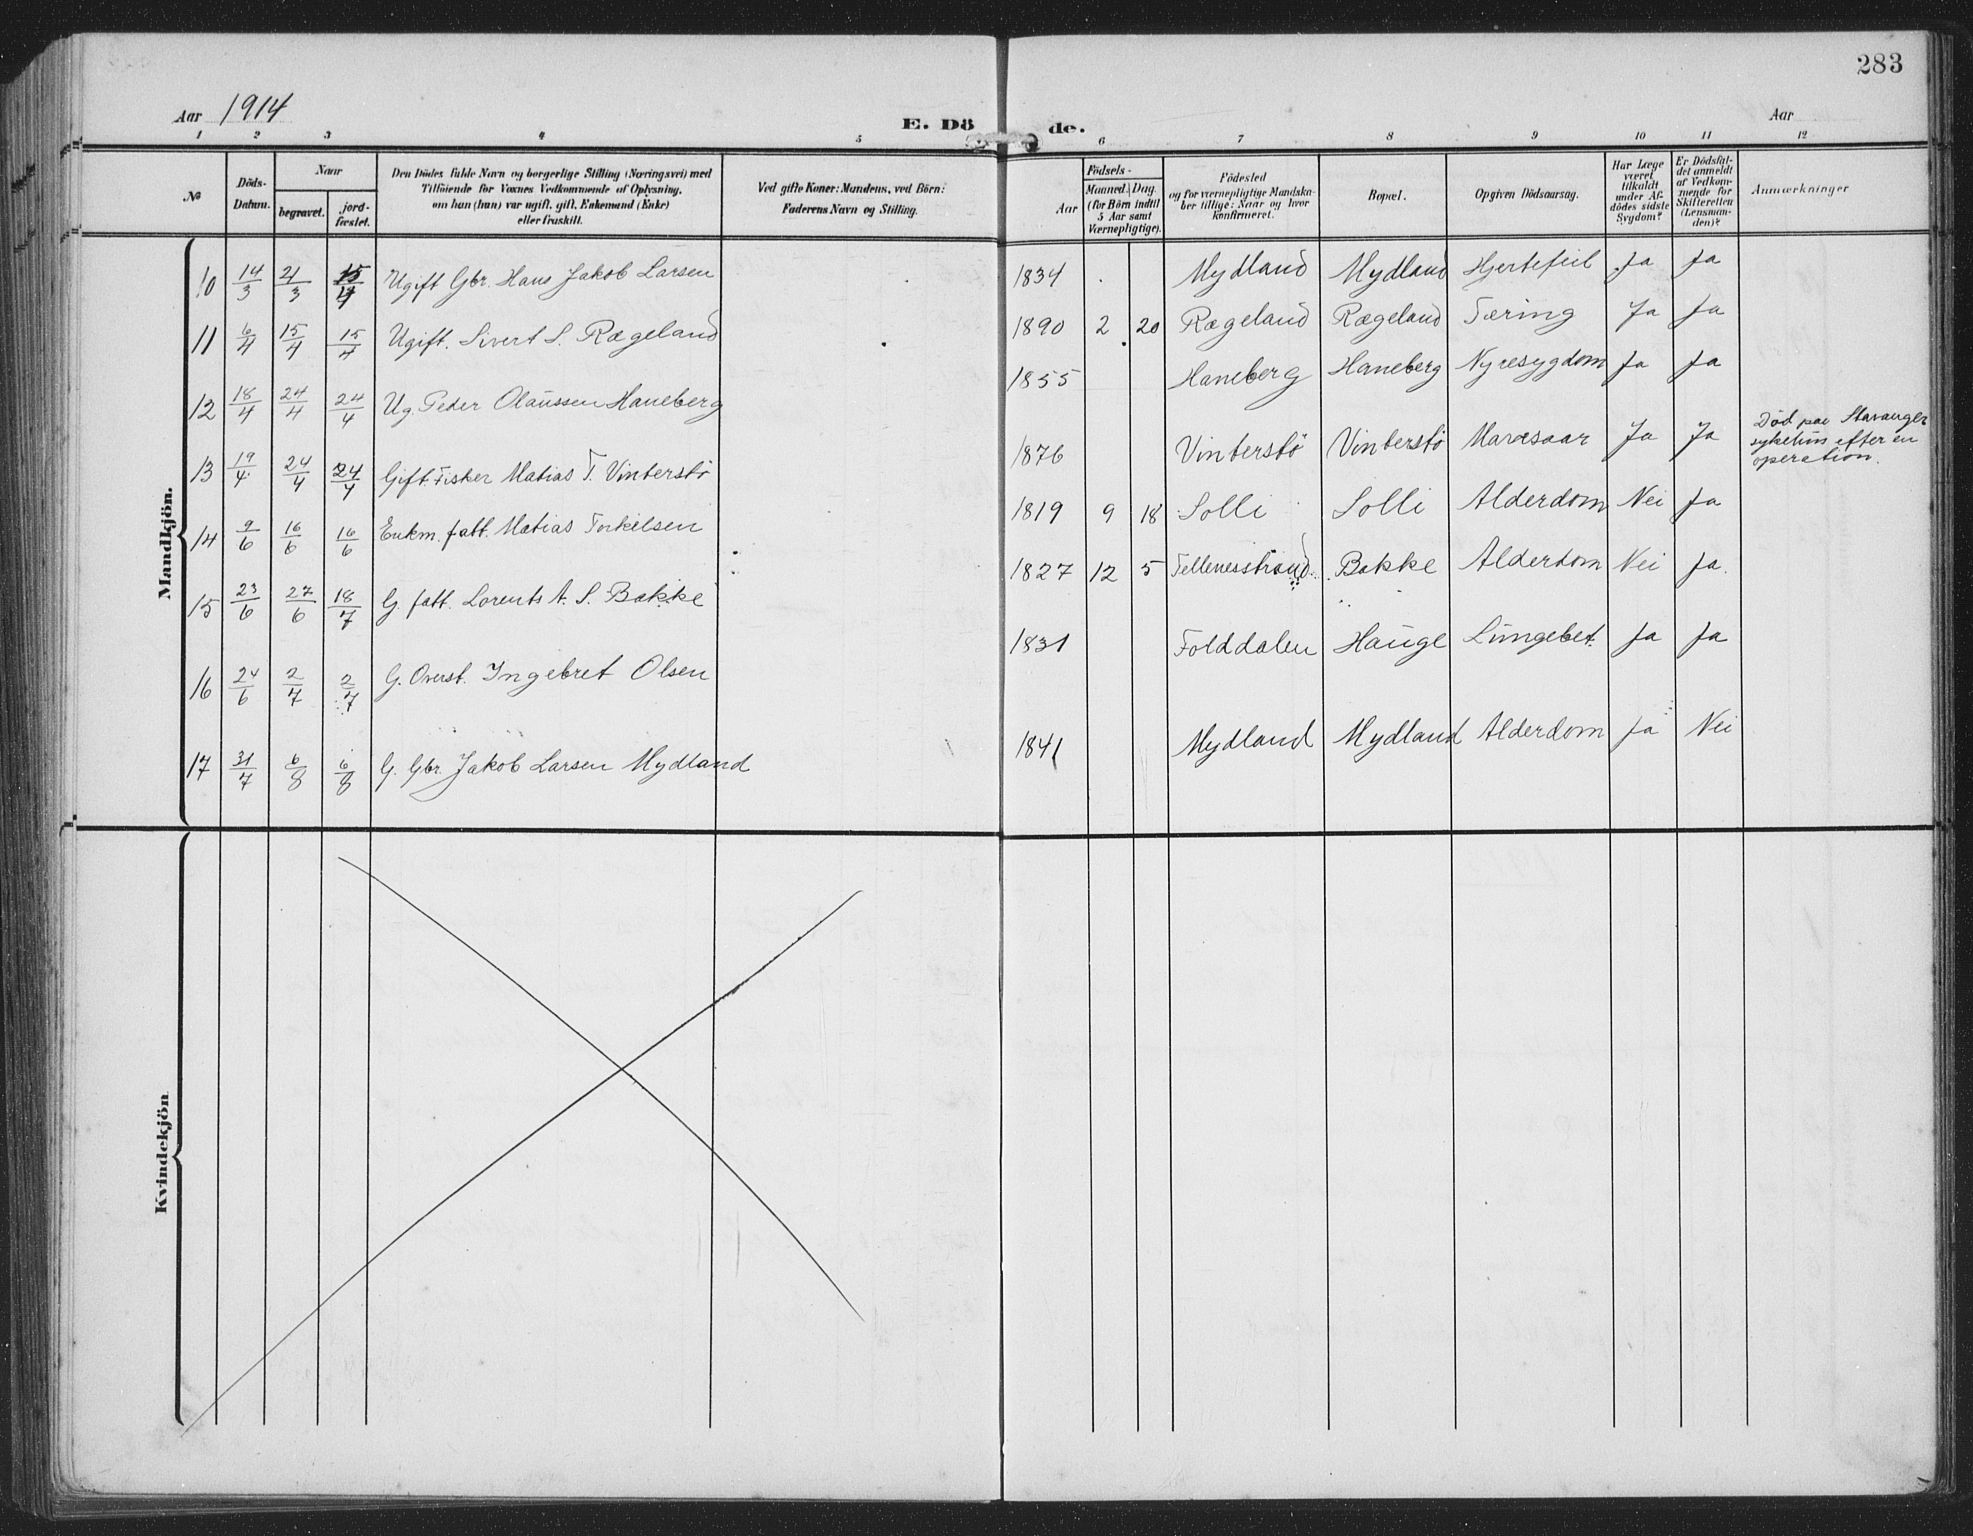 283
Aar 1914
E. Dö de.
Aar
1 2 3 4 5 6 7 8 9 10 11 12
№
Döds-Datum.
Naar
begravet.
jord-fæstet.
Den Dödes fulde Navn og borgerlige Stilling (Næringsvei) med
Tilföiende for Voxnes Vedkommende af Oplysning,
om han (hun) var ugift, gift, Enkemand (Enke)
eller fraskilt.
Ved gifte Koner: Mandens, ved Börn:
Faderens Navn og Stilling.
Födsels-
Aar
Maaned. Dag.
(for Börn indtil
5 Aar samt
Værnepligtige).
Födested
og for værnepligtige Mandska-
ber tillige: Naar og hvor
konfirmeret.
Bopæl.
Opgiven Dödsaarsag.
Har Læge
været
tilkaldt
under Af-
dödes sidste
Sygdom?
Er Dödsfal-
det anmeldt
af Vedkom-
mende for
Skifteretten
(Lensman-
den)?
Anmærkninger
Mandkjön.
10 14/3 21/3 15/4 Ugift Gbr. Hans Jakob Larsen 1834 Mydland Mydland Hjertefeil Ja Ja
11 6/4 15/4 15/4 Ugift. Sivert S. Rægeland 1890 2 20 Rægeland Rægeland Tæring Ja Ja
12 18/4 24/4 24/4 Ug. Peder Olaussen Haneberg 1855 Haneberg Haneberg Nyresygdom Ja Ja
13 19/4 24/4 24/4 Gift. Fisker Matias T. Vinterstö 1876 Vinterstö Vinterstö Mavesaar Ja Ja Död paa Stavanger
sykehus efter en
operation.
14 9/6 16/6 16/6 Enkm. fatt. Matias Torkelsen 1819 9 18 Solli Solli Alderdom Nei Ja
15 23/6 27/6 18/7 G. fatt. Lorents A. S. Bakke 1827 12 5 Tellenesstrand Bakke Alderdom Nei Ja.
16 24/6 2/7 2/7 G. Overst. Ingebret Olsen 1831 Folddalen Hauge Lungebet. Ja Ja
17 31/7 6/8 6/8 G. Gbr. Jakob Larsen Mydland 1841 Mydland Mydland Alderdom Ja Nei
Kvindekjön.